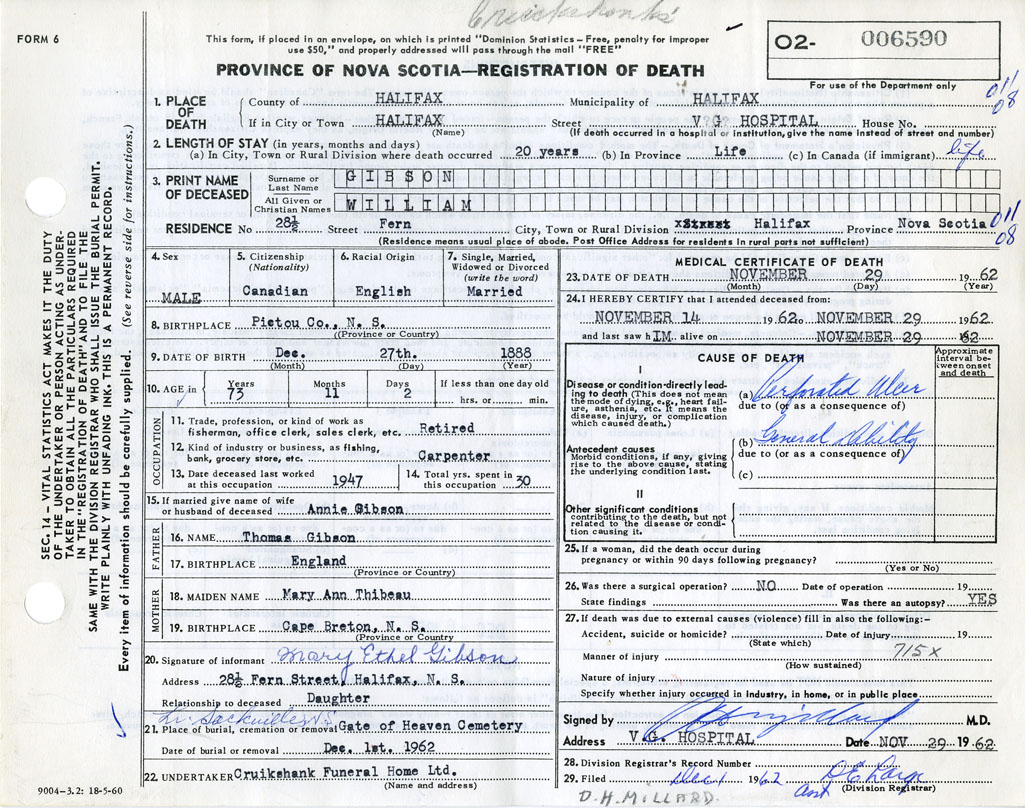 Cruikshonks
FORM 6
This form, if placed in an envelope, on which is printed "Dominion Statistics – Free, penalty for improper
use $50," and properly addressed will pass through the mail "FREE"
02- 006590
PROVINCE OF NOVA SCOTIA—REGISTRATION OF DEATH
For use of the Department only
011
08
1. PLACE OF DEATH
County of HALIFAX Municipality of HALIFAX
If in City or Town HALIFAX Street V G HOSPITAL House No.
(Name) (If death occurred in a hospital or institution, give the name instead of street and number)
2. LENGTH OF STAY (in years, months and days)
(a) In City, Town or Rural Division where death occurred 20 years (b) In Province Life (c) In Canada (if immigrant) life
3. PRINT NAME OF DECEASED
Surname or Last Name GIBSON
All Given or Christian Names WILLIAM
RESIDENCE No 28½ Street Fern City, Town or Rural Division xStreet Halifax Province Nova Scotia
011
08
(Residence means usual place of abode. Post Office Address for residents in rural parts not sufficient)
4. Sex
MALE
5. Citizenship
(Nationality)
Canadian
6. Racial Origin
English
7. Single, Married,
Widowed or Divorced
(write the word)
Married
8. BIRTHPLACE Pictou Co., N. S.
(Province or Country)
9. DATE OF BIRTH Dec. 27th. 1888
(Month) (Day) (Year)
10. AGE in
Years Months Days If less than one day old
73 11 2 hrs. or min.
OCCUPATION
11. Trade, profession, or kind of work as
fisherman, office clerk, sales clerk, etc. Retired
12. Kind of industry or business, as fishing,
bank, grocery store, etc. Carpenter
13. Date deceased last worked
at this occupation 1947
14. Total yrs. spent in
this occupation 30
15. If married give name of wife
or husband of deceased Annie Gibson
FATHER
16. NAME Thomas Gibson
17. BIRTHPLACE England
(Province or Country)
MOTHER
18. MAIDEN NAME Mary Ann Thibeau
19. BIRTHPLACE Cape Breton, N. S.
(Province or Country)
20. Signature of informant Mary Ethel Gibson
Address 28½ Fern Street, Halifax, N. S.
Relationship to deceased Daughter
Lr. Sackville N.S
21. Place of burial, cremation or removal Gate of Heaven Cemetery
Date of burial or removal Dec. 1st. 1962
22. UNDERTAKER Cruikshank Funeral Home Ltd.
(Name and address)
MEDICAL CERTIFICATE OF DEATH
23. DATE OF DEATH NOVEMBER 29 19 62
(Month) (Day) (Year)
24. I HEREBY CERTIFY that I attended deceased from:
NOVEMBER 14 1962 NOVEMBER 29 1962
and last saw hIM alive on NOVEMBER 29 62
CAUSE OF DEATH
Approximate interval between onset and death
I
Disease or condition-directly leading to death (This does not
mean the mode of dying, e.g., heart failure, asthenia, etc. It means the
disease, injury, or complication
which caused death.)
(a) Perforated Ulcer
due to (or as a consequence of)
Antecedent causes
Morbid conditions, if any, giving
rise to the above cause, stating
the underlying condition last.
(b) General Debility
due to (or as a consequence of)
(c)
II
Other significant conditions
contributing to the death, but not
related to the disease or condition causing it.
25. If a woman, did the death occur during
pregnancy or within 90 days following pregnancy?
(Yes or No)
26. Was there a surgical operation? NO Date of operation 19
State findings Was there an autopsy? YES
27. If death was due to external causes (violence) fill in also the following:-
Accident, suicide or homicide? Date of injury 19
(State which)
Manner of injury 715 x
(How sustained)
Nature of injury
Specify whether injury occurred in industry, in home, or in public place
Signed by M.D.
Address V.G. HOSPITAL Date NOV 29 19 62
28. Division Registrar's Record Number
29. Filed Dec 1 1962
(Division Registrar)
D.H. MILLARD.
SEC. 14 – VITAL STATISTICS ACT MAKES IT THE DUTY
OF THE UNDERTAKER OR PERSON ACTING AS UNDER-
TAKER TO OBTAIN ALL THE PARTICULARS REQUIRED
IN THE "REGISTRATION OF DEATH" AND TO FILE THE
SAME WITH THE DIVISION REGISTRAR WHO SHALL ISSUE THE BURIAL PERMIT.
WRITE PLAINLY WITH UNFADING INK. THIS IS A PERMANENT RECORD.
Every item of information should be carefully supplied. (See reverse side for instructions.)
9004–3.2: 18-5-60